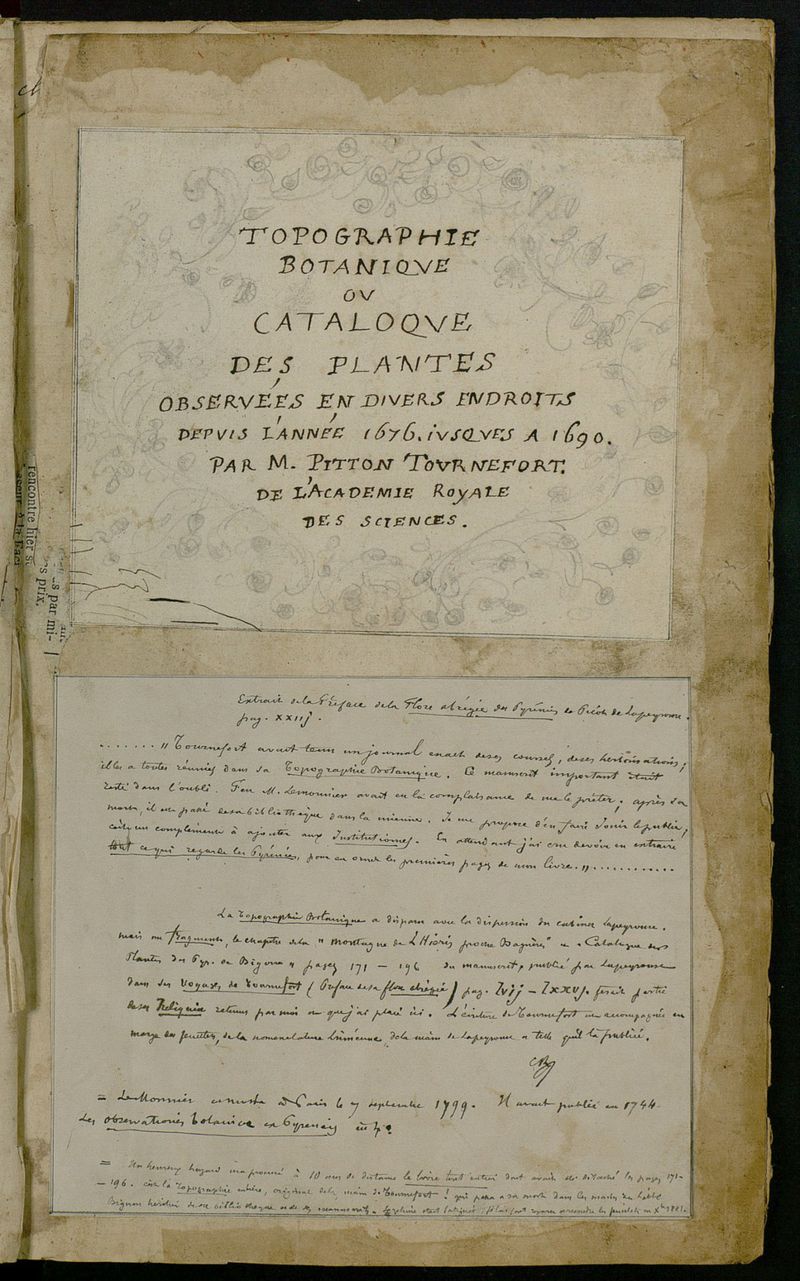 TOPOGRAPHIE
BOTANIQVE
OV
CATALOQVE
DES PLANTES
OBSERVÉES EN DIVERS ENDROITS
DEPVIS L'ANNÉE 1676. IVSQVES A 1690.
PAR M. PITTON TOVRNEFORT.
DE L'ACADEMIE ROYALE
DES SCIENCES.
rencontre hier s
s prix.
s par mi-
Extrait de la Préface de la Flore abrégée des Pyrénées de Picot de Lapeyrouse.
pag. XXIIJ.
....... " Tournefort avait tenu un journal exact de ses courses, de ses herborisations,
il les a toutes réunies dans sa Topographie Botanique. Ce manuscrit important était
resté dans l'oubli. Feu M. Lemonnier avait eu la complaisance de me le prêter. après sa
mort, il est passé de sa bibliothèque dans la mienne. Je me propose d'en faire jouir le public,
comme complément à ajouter aux Institutiones. En attendant j'ai cru devoir en extraire
tout ce qui regarde les Pyrénées, pour en orner les premières pages de mon livre. " ...........
La Topographie Botanique a disparu avec la dispersion du cabinet Lapeyrouse.
mais un fragment, le chapitre de la " montagne de L'Hiéris proche Bagnères " et " Catalogue des
Plantes des Pyr. de Bigorre " pages 171 — 196 du manuscrit, publié par Lapeyrouse
dans ses Voyages de Tournefort (Préface de sa flore abrégée) pag. LVIJ — LXXVJ. faisait partie
de ses Reliquiæ retenus par moi et que j'ai placé ici. L'écriture de Tournefort est accompagnée en
marge des feuillets, de la nomenclature Linnéenne de la main de Lapeyrouse et telle qu'il l'a publiée.
= LeMonnier est mort à Paris le 7 septembre 1799. Il avait publié en 1744
Les observationes botanicæ in Pyrenæis en 4°
= Un heureux hazard m'a procuré à 10 ans de distance le livre tout entier dont avait été détaché les pages 171-
— 196. c'est la Topographie entière, originale de la main de Tournefort! qui passa à sa mort dans les mains de l'abbé
Bignon héritier de sa bibliothèque et de ses manuscrits.